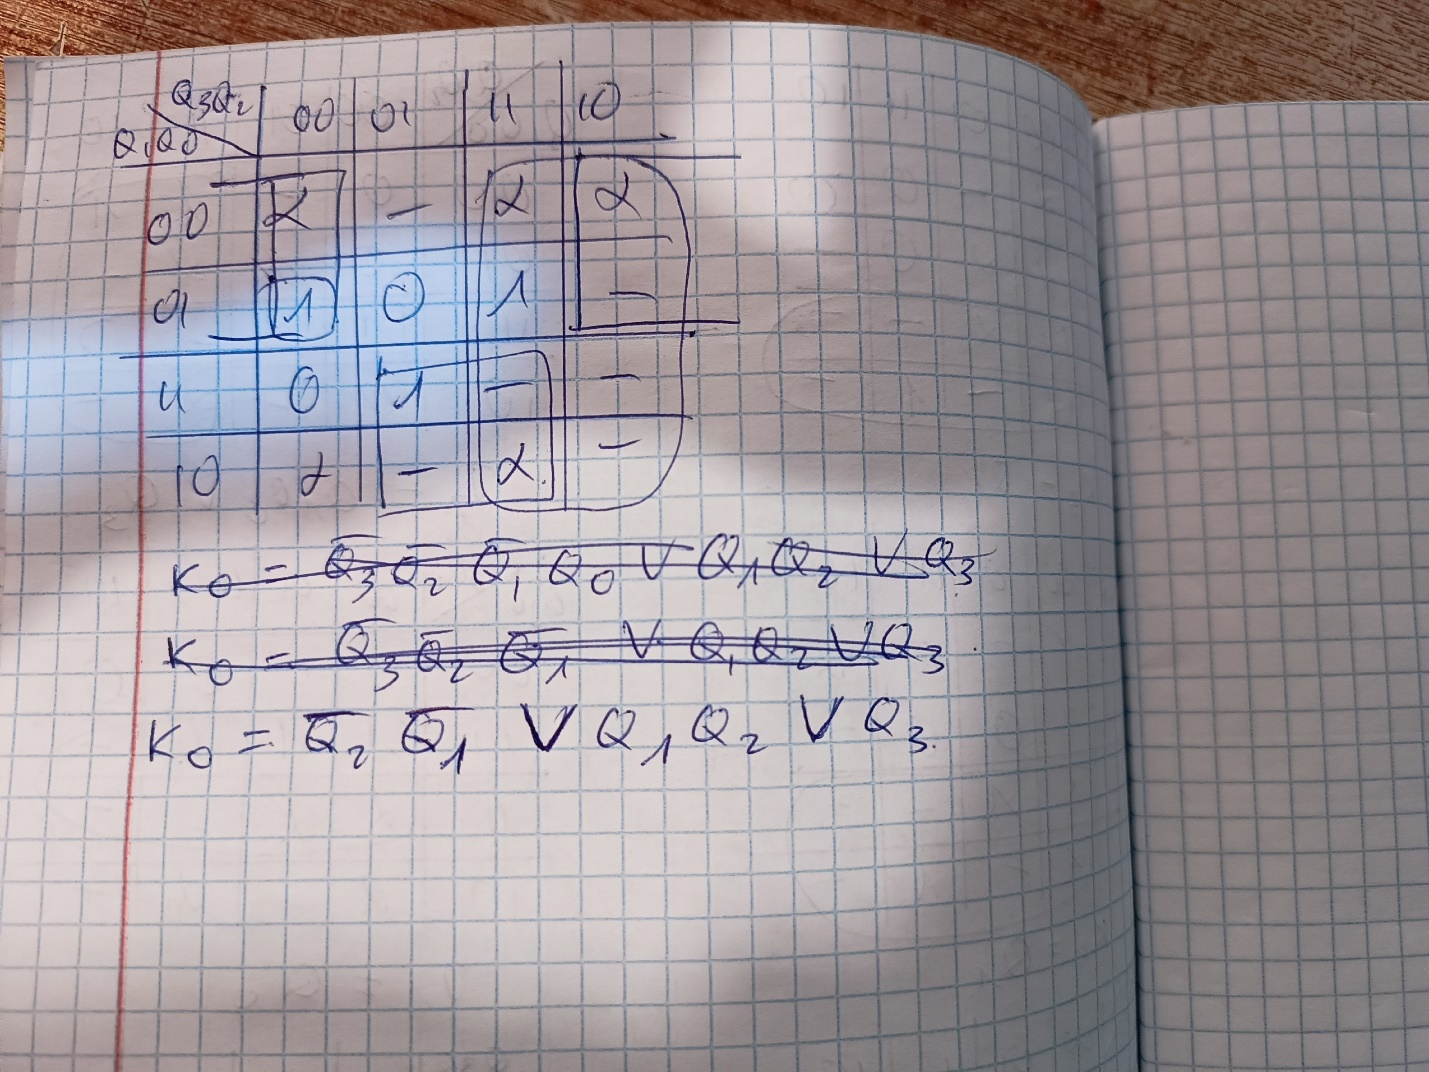 Q₃Q₂ 00 01 11 10
Q₁Q0
00 α – α α
01 1 0 1 –
11 0 1 – –
10 α – α –
K₀ = Q̅₃ Q̅₂ Q̅₁ Q₀ V Q₁ Q₂ V Q₃
K₀ = Q̅₃ Q̅₂ Q̅₁ V Q₁ Q₂ V Q₃
K₀ = Q̅₂ Q̅₁ V Q₁ Q₂ V Q₃.